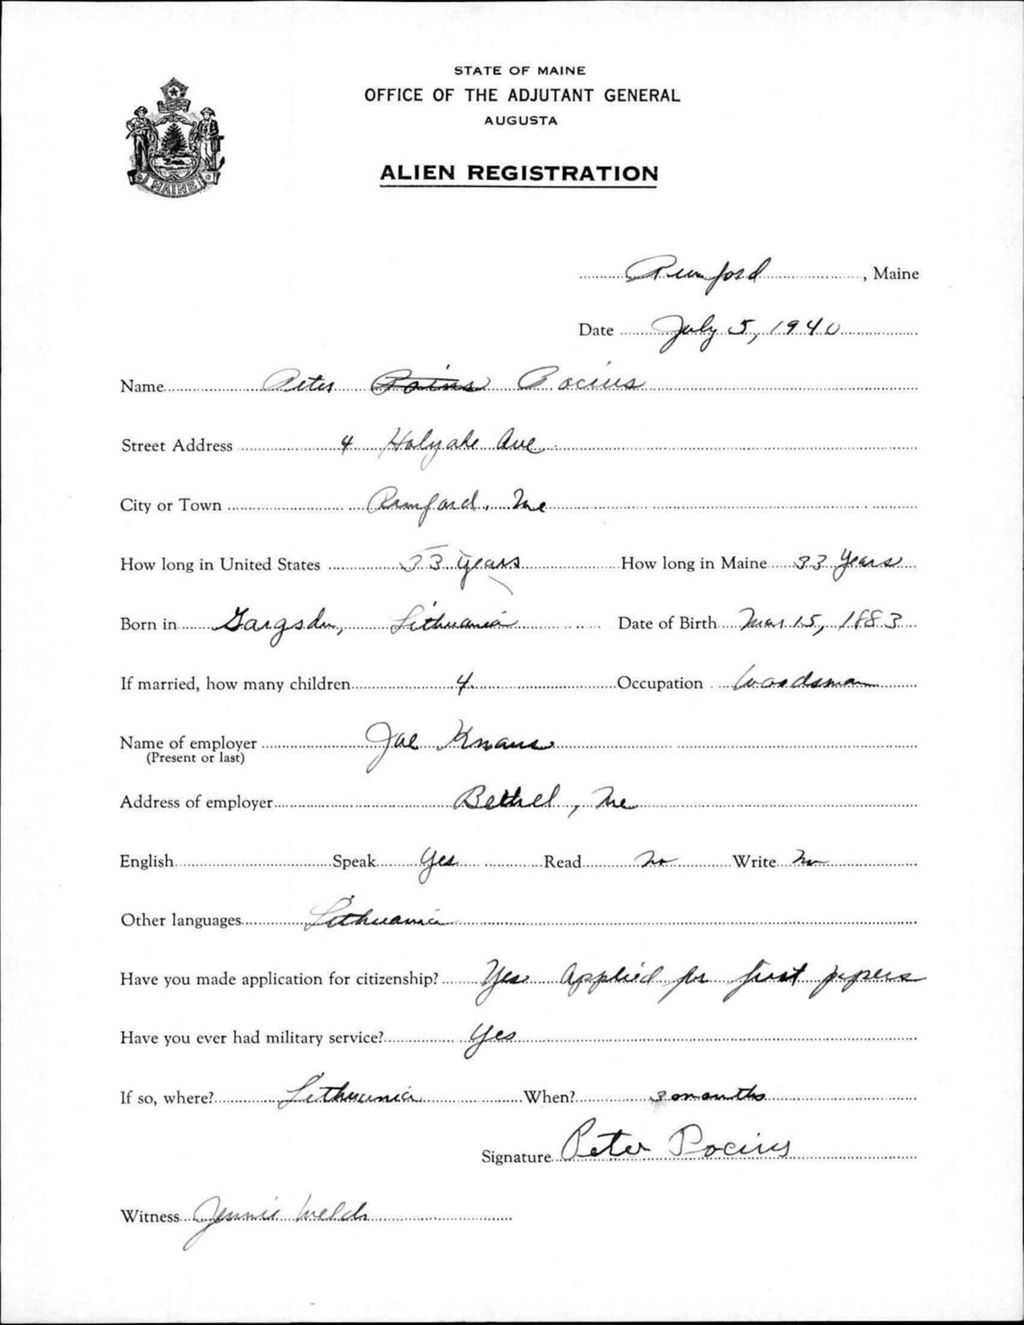 STATE OF MAINE
OFFICE OF THE ADJUTANT GENERAL
AUGUSTA
ALIEN REGISTRATION
MAINE
Rumford, Maine
Date July 5, 1940
Name Peter Pocius
Street Address 4 Holyoke Ave
City or Town Rumford, Me
How long in United States 33 years How long in Maine 33 years
Born in Gargsdn, Lithuania Date of Birth Mar 15, 1883
If married, how many children 4 Occupation Woodsman
Name of employer Joe Knaus
(Present or last)
Address of employer Bethel, Me
English Speak Yes Read No Write No
Other languages Lithuania
Have you made application for citizenship? Yes Applied for first papers
Have you ever had military service? Yes
If so, where? Lithuania When? 3 months
Signature Peter Pocius
Witness Jennie Welch